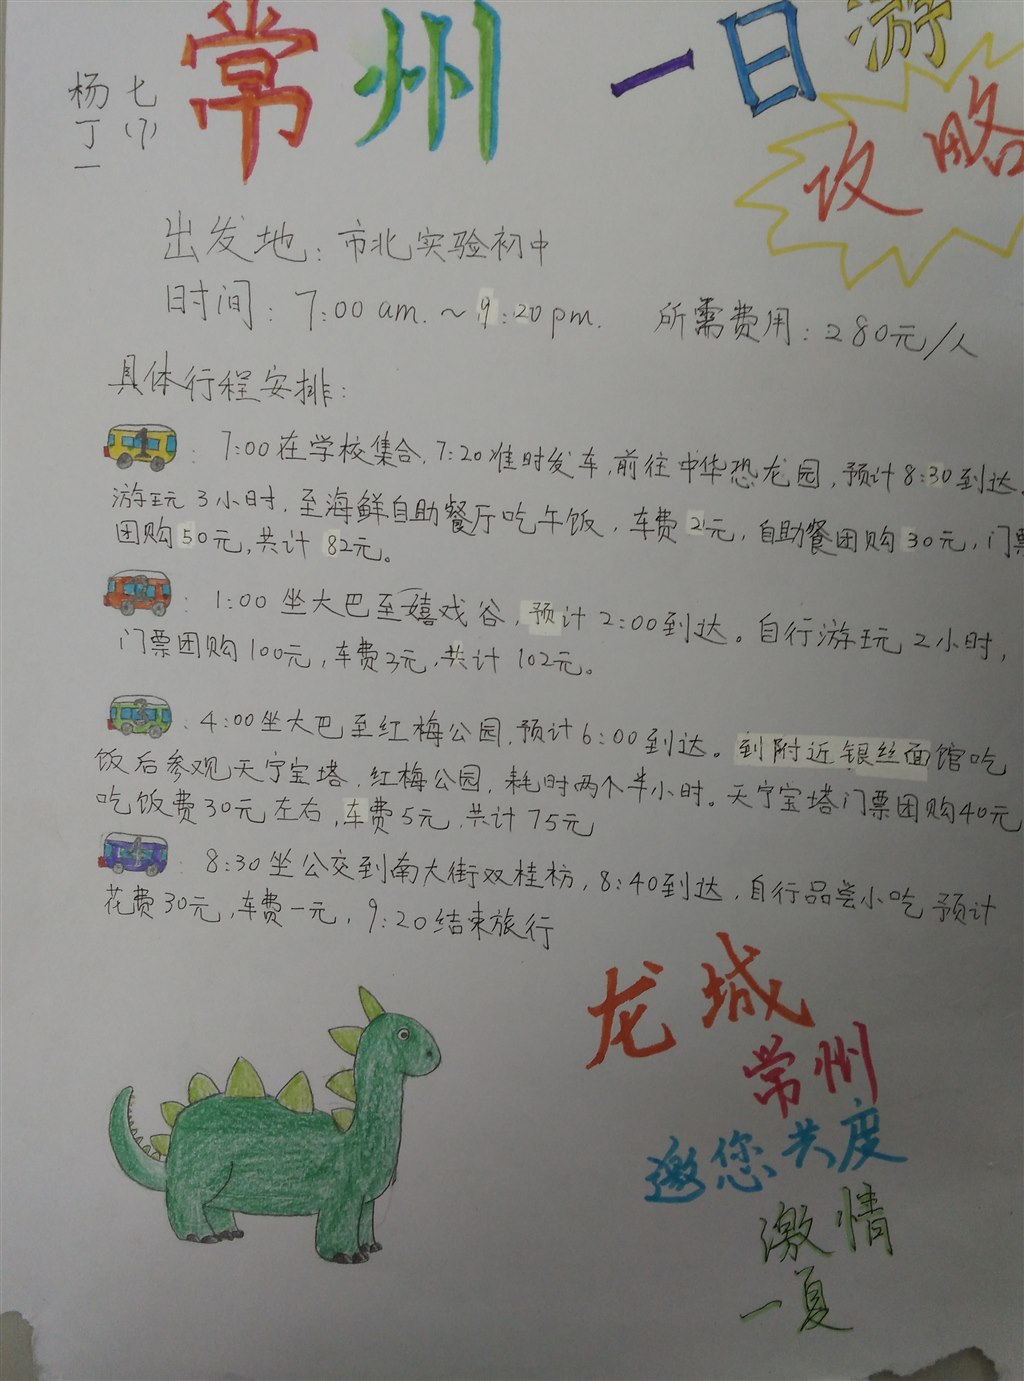 常州 一日游
攻略
七(7)
杨丁一
出发地：市北实验初中
时间：7:00 am.～9:20 pm. 所需费用：280元/人
具体行程安排：
1：7:00在学校集合，7:20准时发车，前往中华恐龙园，预计8:30到达。
游玩3小时，至海鲜自助餐厅吃午饭，车费2元，自助餐团购30元，门票
团购50元，共计82元。
2：1:00坐大巴至嬉戏谷，预计2:00到达。自行游玩2小时，
门票团购100元，车费3元，共计102元。
3：4:00坐大巴至红梅公园，预计6:00到达。到附近银丝面馆吃
饭后参观天宁宝塔，红梅公园，耗时两个半小时。天宁宝塔门票团购40元
吃饭费30元左右，车费5元，共计75元
4：8:30坐公交到南大街双桂枋，8:40到达，自行品尝小吃预计
花费30元，车费一元，9:20结束旅行
龙城
常州
邀您共度
激情
一夏